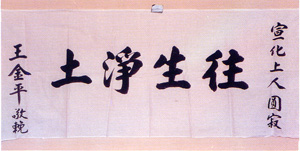 宣化上人圓寂
往生淨土
王金平敬輓